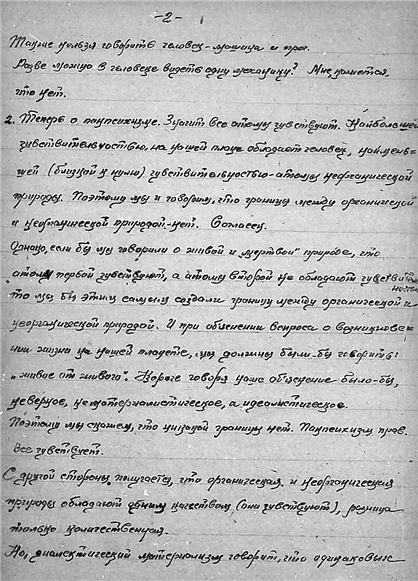 -2-
Также нельзя говорить человек-машина и проч.
Разве можно в человеке видеть одну механику? Мне кажется
что нет.
2. Теперь о панпсихизме. Значит все атомы чувствуют. Наибольшей
чувствительностью, на нашей планете обладает человек, наимень-
шей (близкой к нулю) чувствительностью-атомы неорганической
природы. Поэтому мы и говорим, что границы между органической
и неорганической природой-нет. Согласен.
Однако, если бы мы говорили о живой и „мертвой" природе, что
атомы первой чувствуют, а атомы второй не обладают чувствитель
ностью
то мы бы этим самым создали границу между органической и
неорганической природой. И при объяснении вопроса о возникнове
нии жизни на нашей планете, мы должны были-бы говорить:
„живое от живого". Короче говоря наше объяснение было-бы,
неверное, нематериалистическое, а идеалистическое.
Поэтому мы скажем, что никакой границы нет. Панпсихизм прав.
Все чувствует.
С другой стороны получается, что органическая и неорганическая
природы обладают одним качеством (они чувствуют), разница
только количественная.
Но, диалектический материализм говорит, что одинаковых